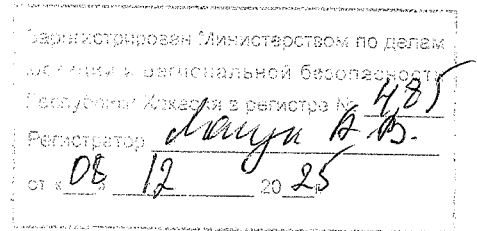 Зарегистрирован Министерством по делам
юстиции и региональной безопасности
Республики Хакасия в регистре № 485
Регистратор А.В.
от «08» 12 2025 г.